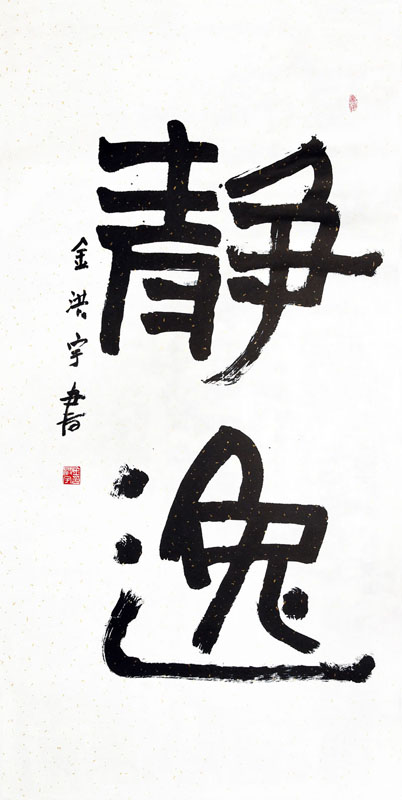 靜逸
金洪宇書